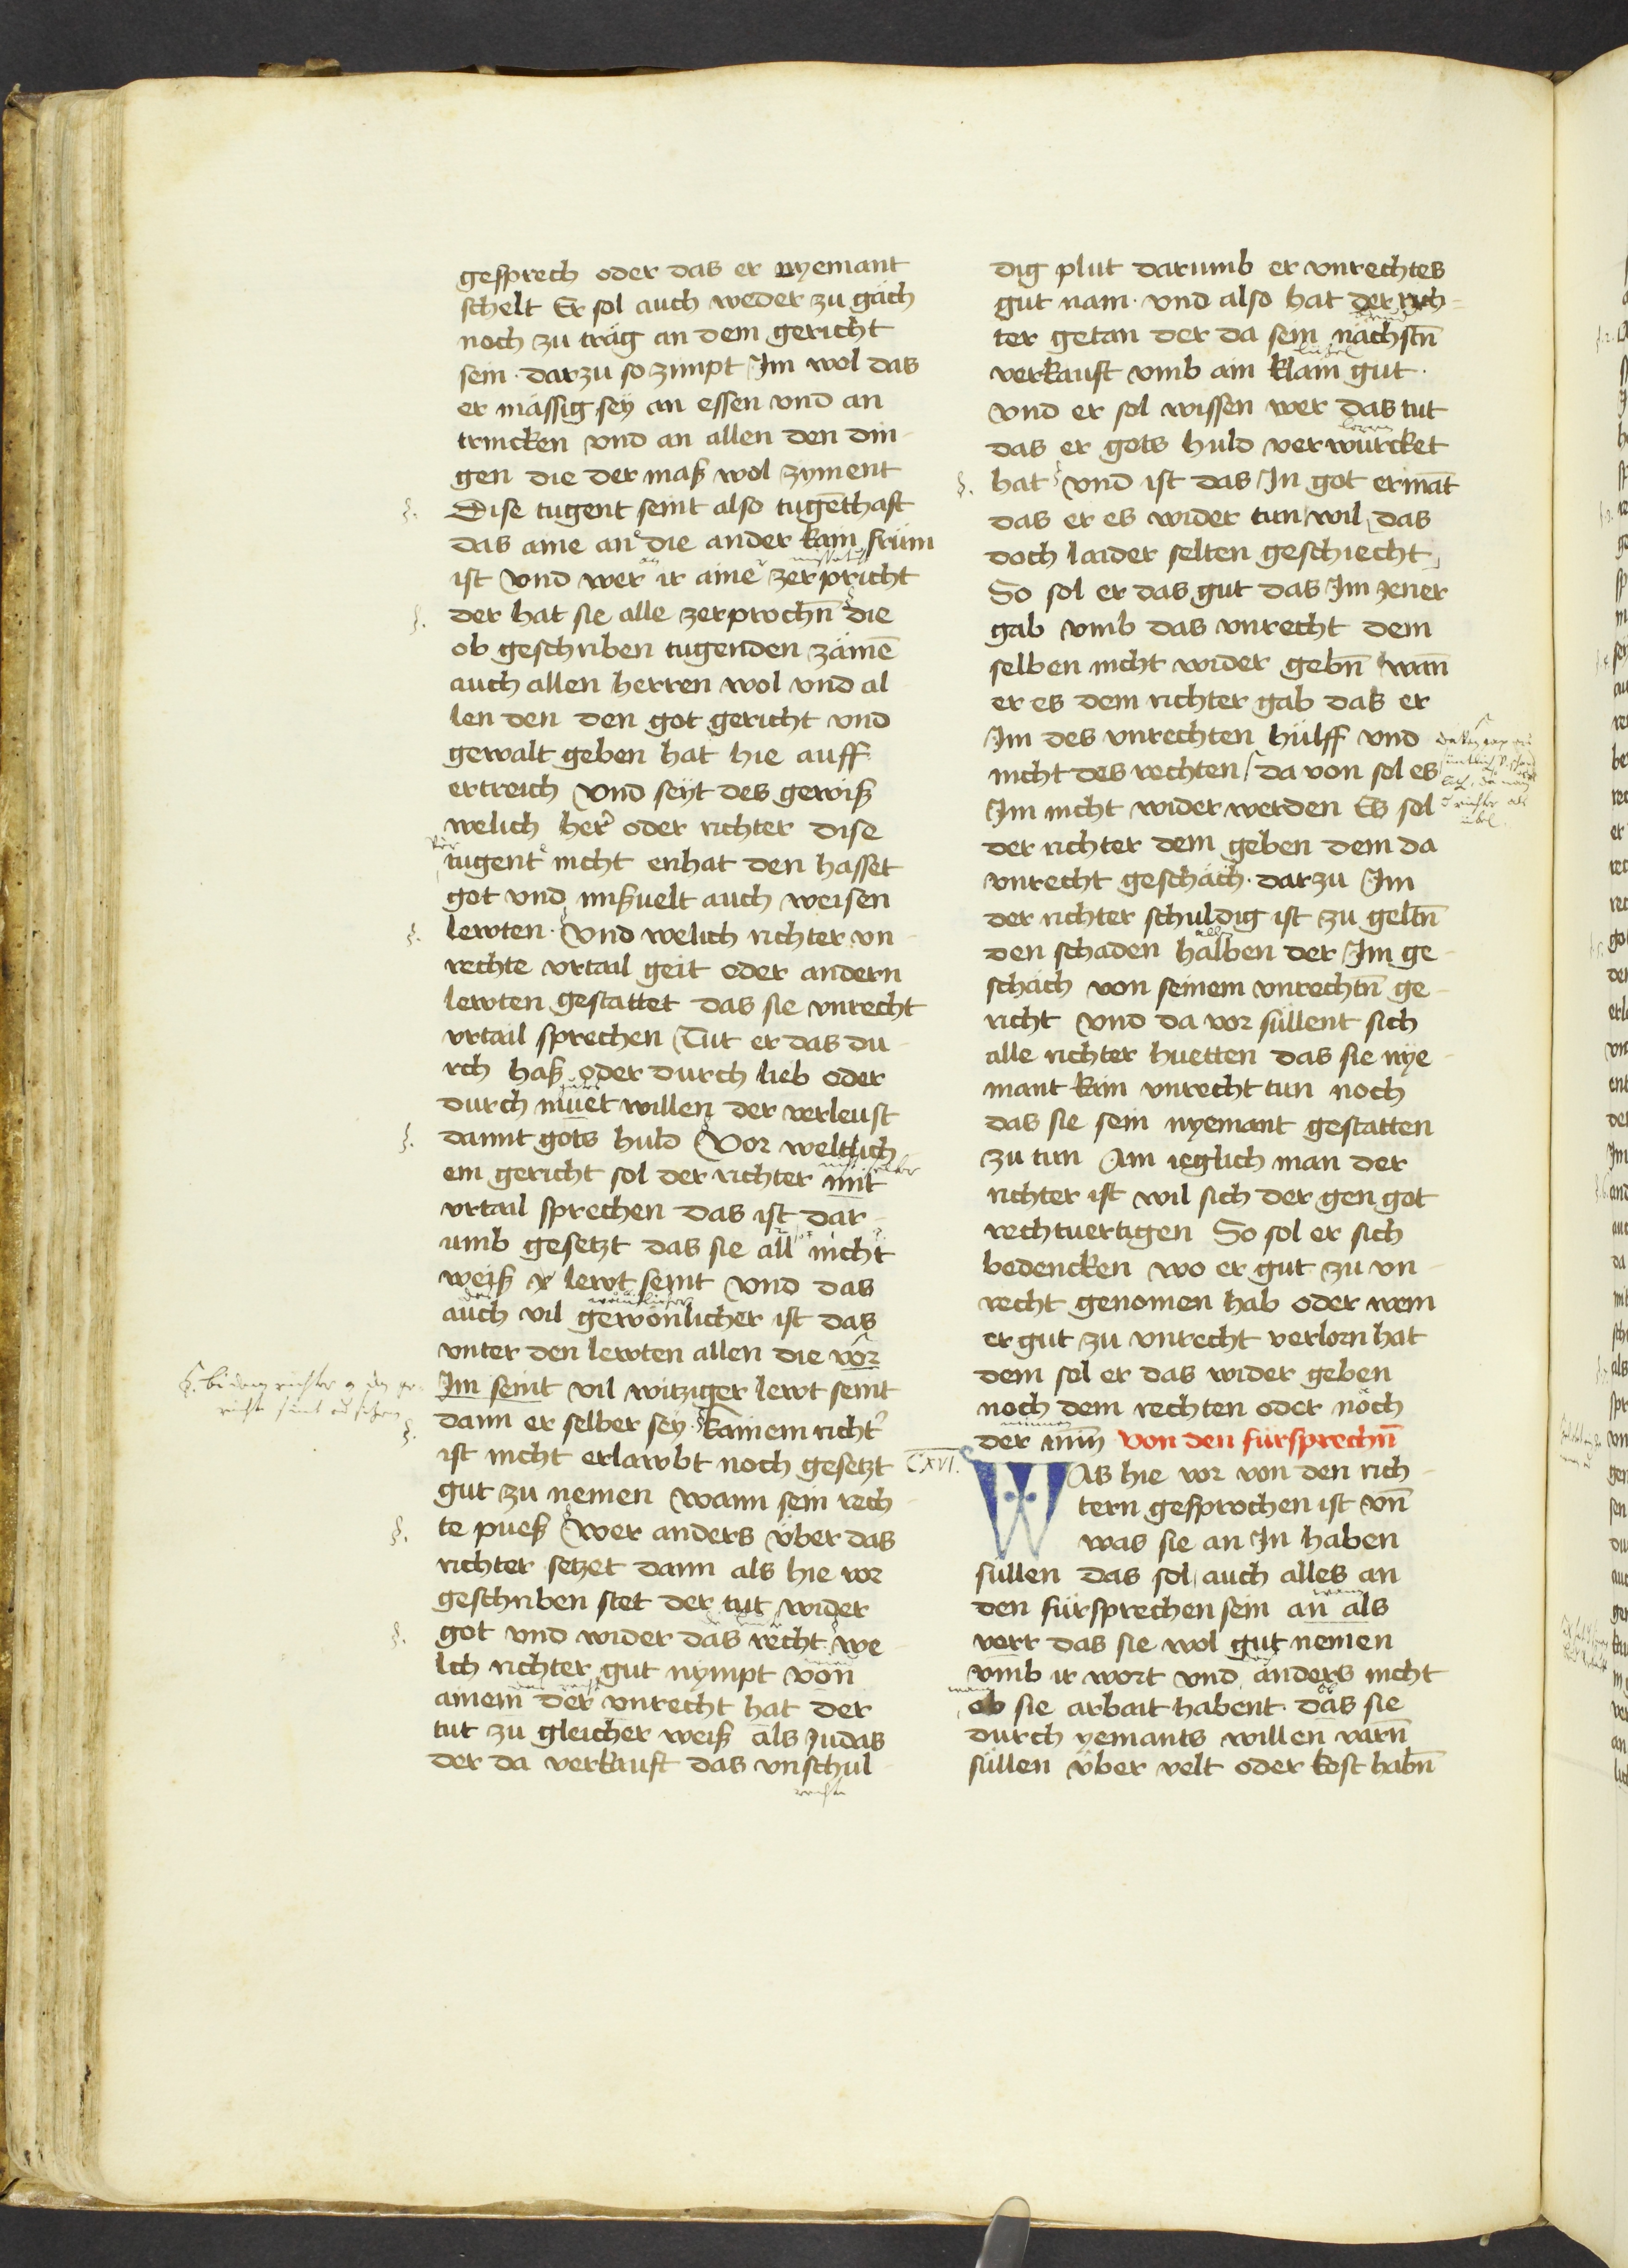 gesprech oder das er nyemant
schelt Er sol auch weder zu gäch
noch zu träg an dem gericht
sein · darzu so zimpt Im wol das
er mässig sey an essen vnd an
trincken vnd an allen den din
gen die der maß wol zyment
Dise tugent seint also tugēthaft
das aine an die ander kain frum
ist vnd wer ir aine zerpricht
der hat sie alle zerprochn̄ die
ob geschriben tugenden zämē
auch allen herren wol vnd al
len den den got gericht vnd
gewalt geben hat hie auff
ertreich vnd seyt des gewiß
welich her oder richter dise
tugent nicht enhat den hasset
got vnd mißuelt auch weisen
lewten · Vnd welich richter vn
rechte vrtail geit oder andern
lewten gestattet das sie vnrecht
vrtail sprechen Tut er das du
rch haß oder durch lieb oder
durch muet willen der verleust
damit gots huld Vor weltlich
em gericht sol der richter mit
vrtail sprechen das ist dar
umb gesetzt das sie all nicht
weiß lewt seint vnd das
auch vil gewonlicher ist das
vnter den lewten allen die vor
Im seint vil witziger lewt seint
dann er selber sey kainem richt
ist nicht erlawbt noch gesetzt
gut zu nemen wann sein rech
te pueß wer anders über das
richter setzet dann als hie vor
geschriben stet der tut wider
got vnd wider das recht we
lich richter gut nympt von
ainem der vnrecht hat der
tut zu gleicher weiß als Judas
der da verkauft das vnschul
dig plut darumb er vnrechtes
gut nam · vnd also hat der rich
ter getan der da sein nächstn̄
verkauft vmb ain klain gut ·
vnd er sol wissen wer das tut
das er gots huld verwürcket
hat vnd ist das In got ermāt
das er es wider tun wil das
doch laider selten geschiecht
So sol er das gut das Im jener
gab vmb das vnrecht dem
selben nicht wider gebn̄ wan̄
er es dem richter gab das er
Im des vnrechten hülff vnd
nicht des rechten da von sol es
Im nicht wider werden Es sol
der richter dem geben dem da
vnrecht geschach · darzu Im
der richter schuldig ist zu geltn̄
den schaden halben der Im ge
schäch von seinem vnrechtn̄ ge
richt vnd da vor süllent sich
alle richter huetten das sie nye
mant kain vnrecht tun noch
das sie sein nyemant gestatten
zu tun Ain ieglich man der
richter ist wil sich der gen got
rechtuertigen So sol er sich
bedencken wo er gut zu vn
recht genomen hab oder wem
er gut zu vnrecht verlorn hat
dem sol er das wider geben
noch dem rechten oder noch
der min̄ Von den fürsprechn̄
CXVI.
WAs hie vor von den rich
tern gesprochen ist vn̄
was sie an In haben
süllen das sol auch alles an
den fürsprechen sein an als
verr das sie wol gut nemen
vmb ir wort vnd anders nicht
ob sie arbait habent · das sie
durch yemants willen varn̄
süllen über velt oder kost habn̄